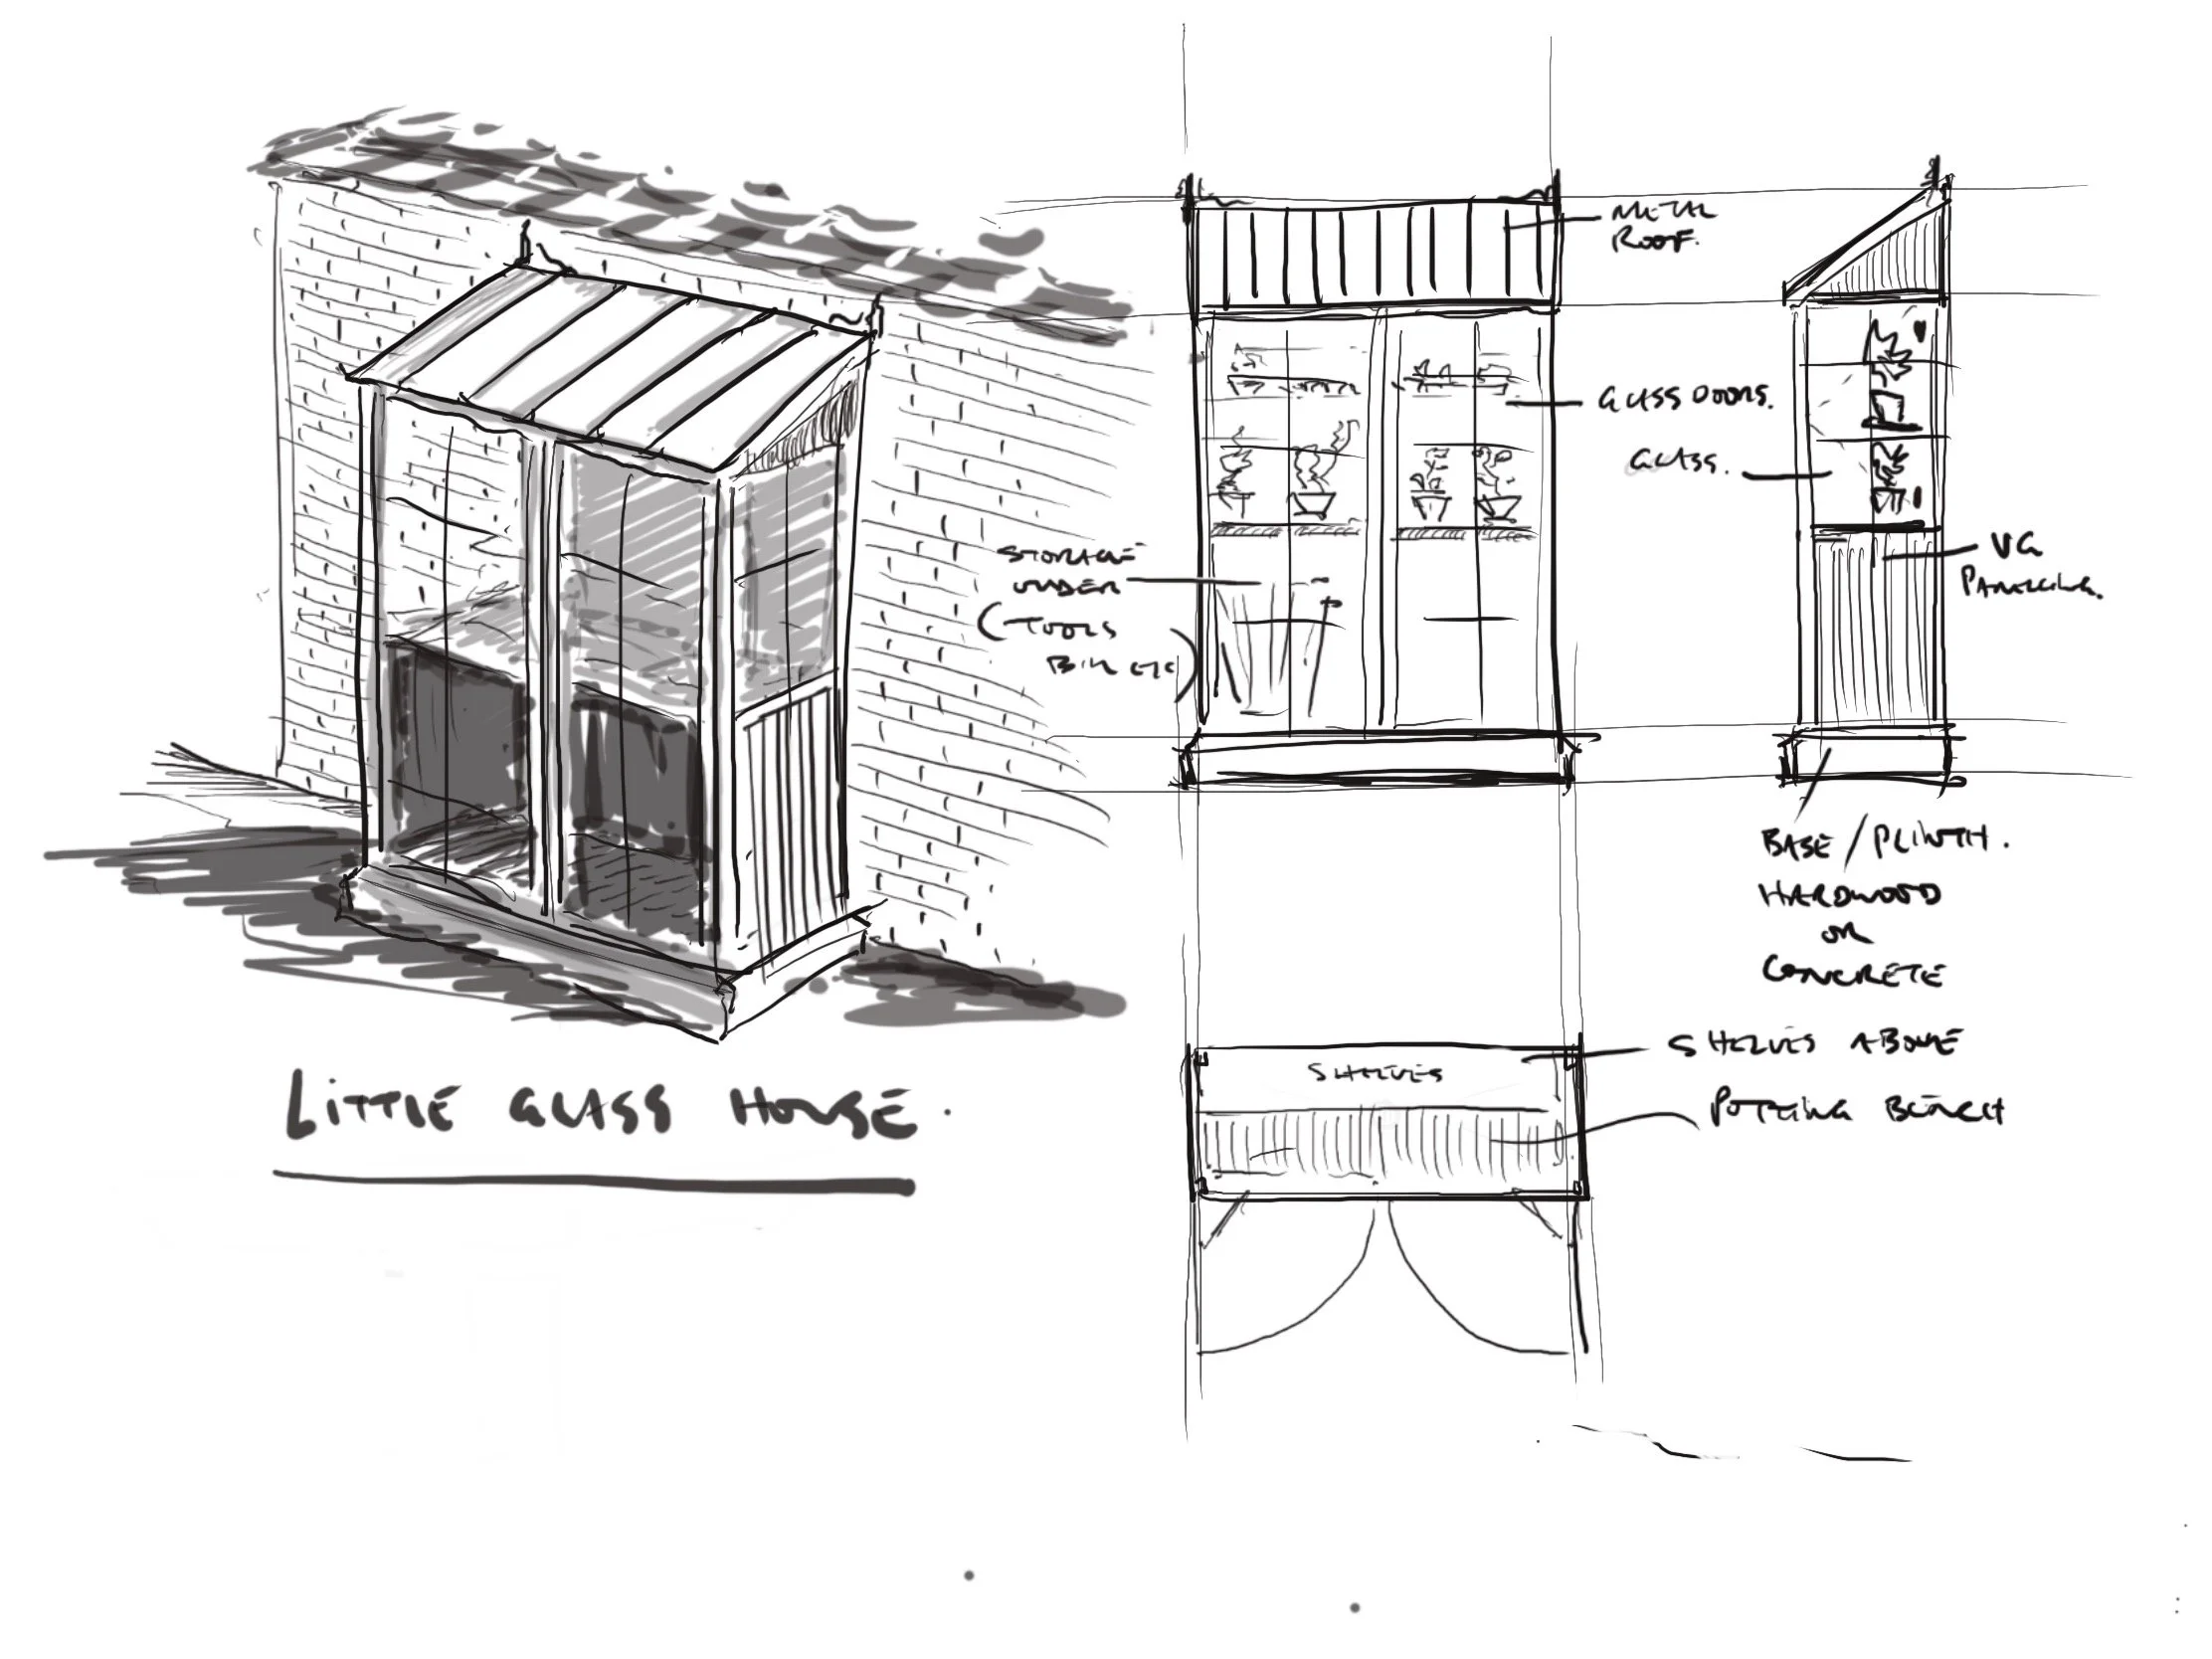 METAL
ROOF.
GLASS DOORS.
GLASS.
STORAGE
UNDER
(TOOLS
BIN ETC)
VG
PANELLING.
BASE / PLINTH.
HARDWOOD
OR
CONCRETE
SHELVES ABOVE
SHELVES
POTTING BENCH
LITTLE GLASS HOUSE.